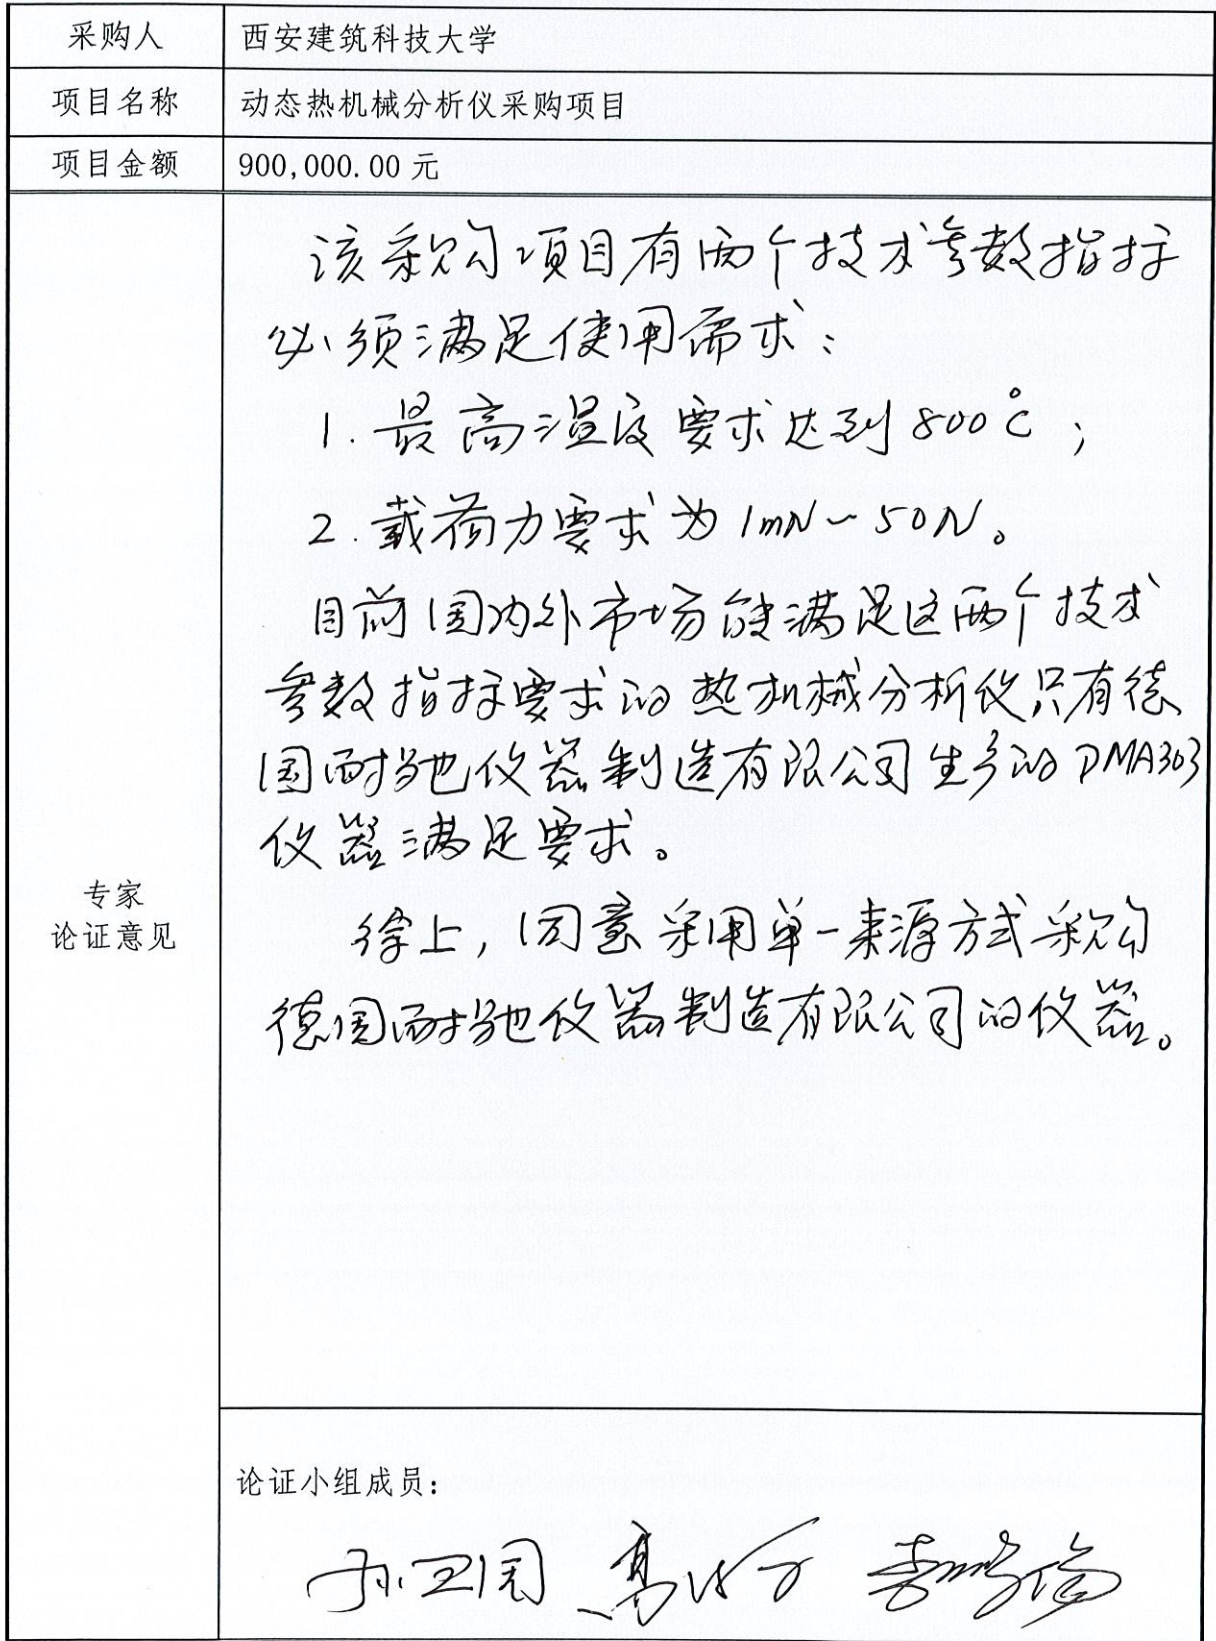 采购人 西安建筑科技大学
项目名称 动态热机械分析仪采购项目
项目金额 900,000.00 元
该采购项目有两个技术参数指标
必须满足使用需求：
1. 最高温度要求达到800℃；
2. 载荷力要求为1mN~50N。
目前国内外市场能满足这两个技术
参数指标要求的热机械分析仪只有德
国耐驰仪器制造有限公司生产的DMA303
仪器满足要求。
专家
论证意见
综上，同意采用单一来源方式采购
德国耐驰仪器制造有限公司的仪器。
论证小组成员：
孙卫国